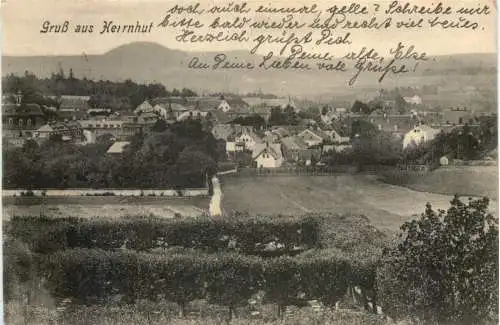 Gruß aus Herrnhut
doch auch einmal, gelle? Schreibe mir
bitte bald wieder und recht viel neues.
Herzlich grüßt Dich
Deine alte Else
An Deine Lieben viele Grüße!